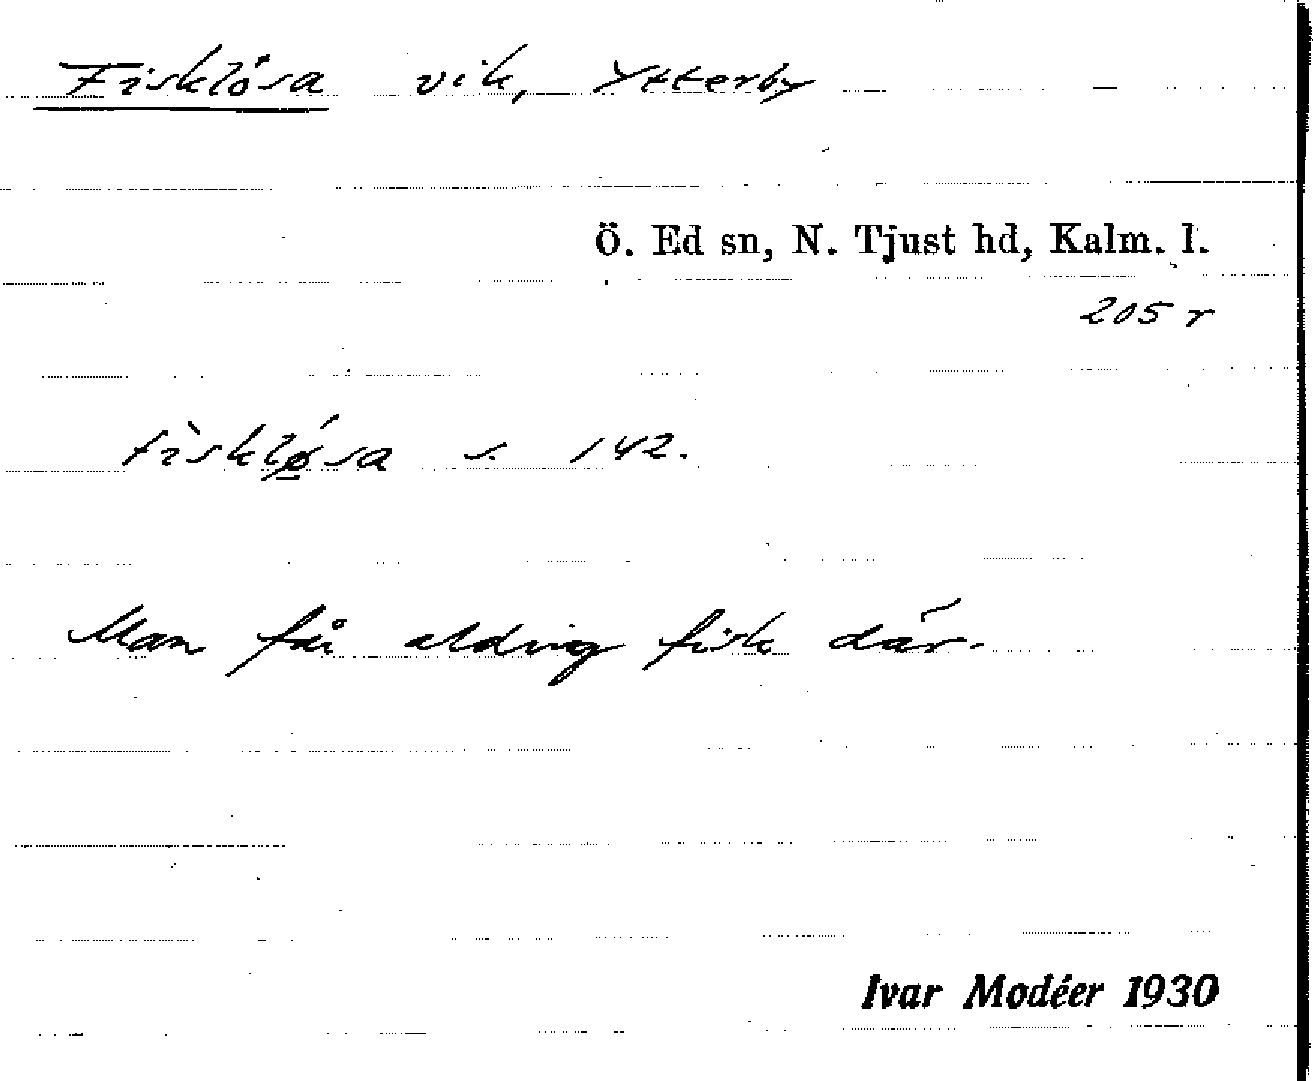 Fisklösa vik, Ytterby
Ö. Ed sn, N. Tjust hd, Kalm. l.
205 r
fìsklǿ̠sa s. 142.
Man får aldrig fisk där.
Ivar Modéer 1930